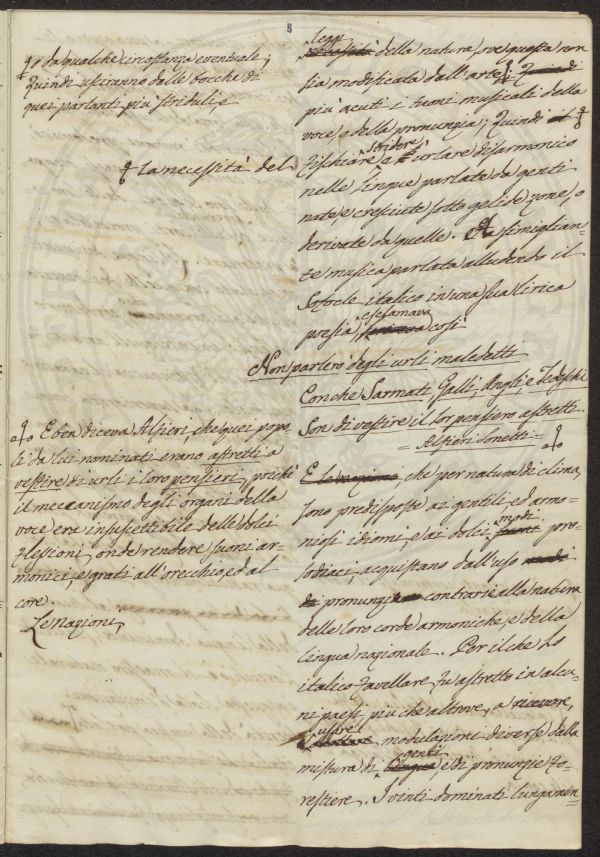 8
o da qualche circostanza eventuale;
Quindi usciranno dalle bocche di
quei parlanti più striduli, e
La necessità del
Ben diceva Alfieri, che quei popo=
li da lui nominati erano astretti a
vestire di urli i loro pensieri, poichè
il meccanismo degli organi della
voce era insuscettibile delle dolci
flessioni, onde rendere suoni ar=
monici, e grati all'orecchio, ed al
core.
Le nazioni,
leggi
della natura, ove questa non
sia modificata dall'arte;
più acuti i tuoni musicali della
voce, o della pronunzia; Quindi
stridere,
fischiare, e urlare disarmonico
nelle lingue parlate da genti
nate, e cresciute sotto gelide zone, o
derivate da quelle. A simiglian=
te musica parlata alludendo il
Sofocle italico in una sua lirica
esclamava
poesia, così
Non parlerò degli urli maledetti
Con che Sarmati, Galli, Angli, e Tedeschi
Son di vestire il lor pensiero astretti.
= Alfieri Sonetti =
E le nazioni, che per natura di clima,
sono predisposte ai gentili, ed armo=
modi
niosi idiomi, e ai dolci pro=
sodiaci, acquistano dall'uso
pronunzie contrarie alla natura
delle loro corde armoniche, e della
lingua nazionale. Per il che lo
italico favellare, fu astretto in alcu=
ni paesi più che altrove, a ricevere,
usare
modulazione diverse dalla
genti
mistura di e di pronunzie fo=
restiere. I vinti dominati lungamen=